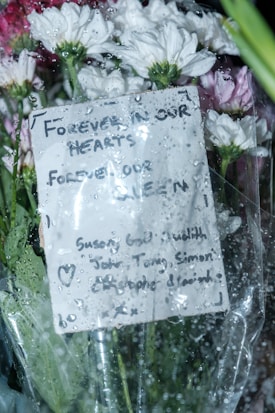 FOREVER IN OUR
HEARTS
FOREVER OUR
QUEEN
Susan Gail Judith
John Tony Simon
Christophe
xxx